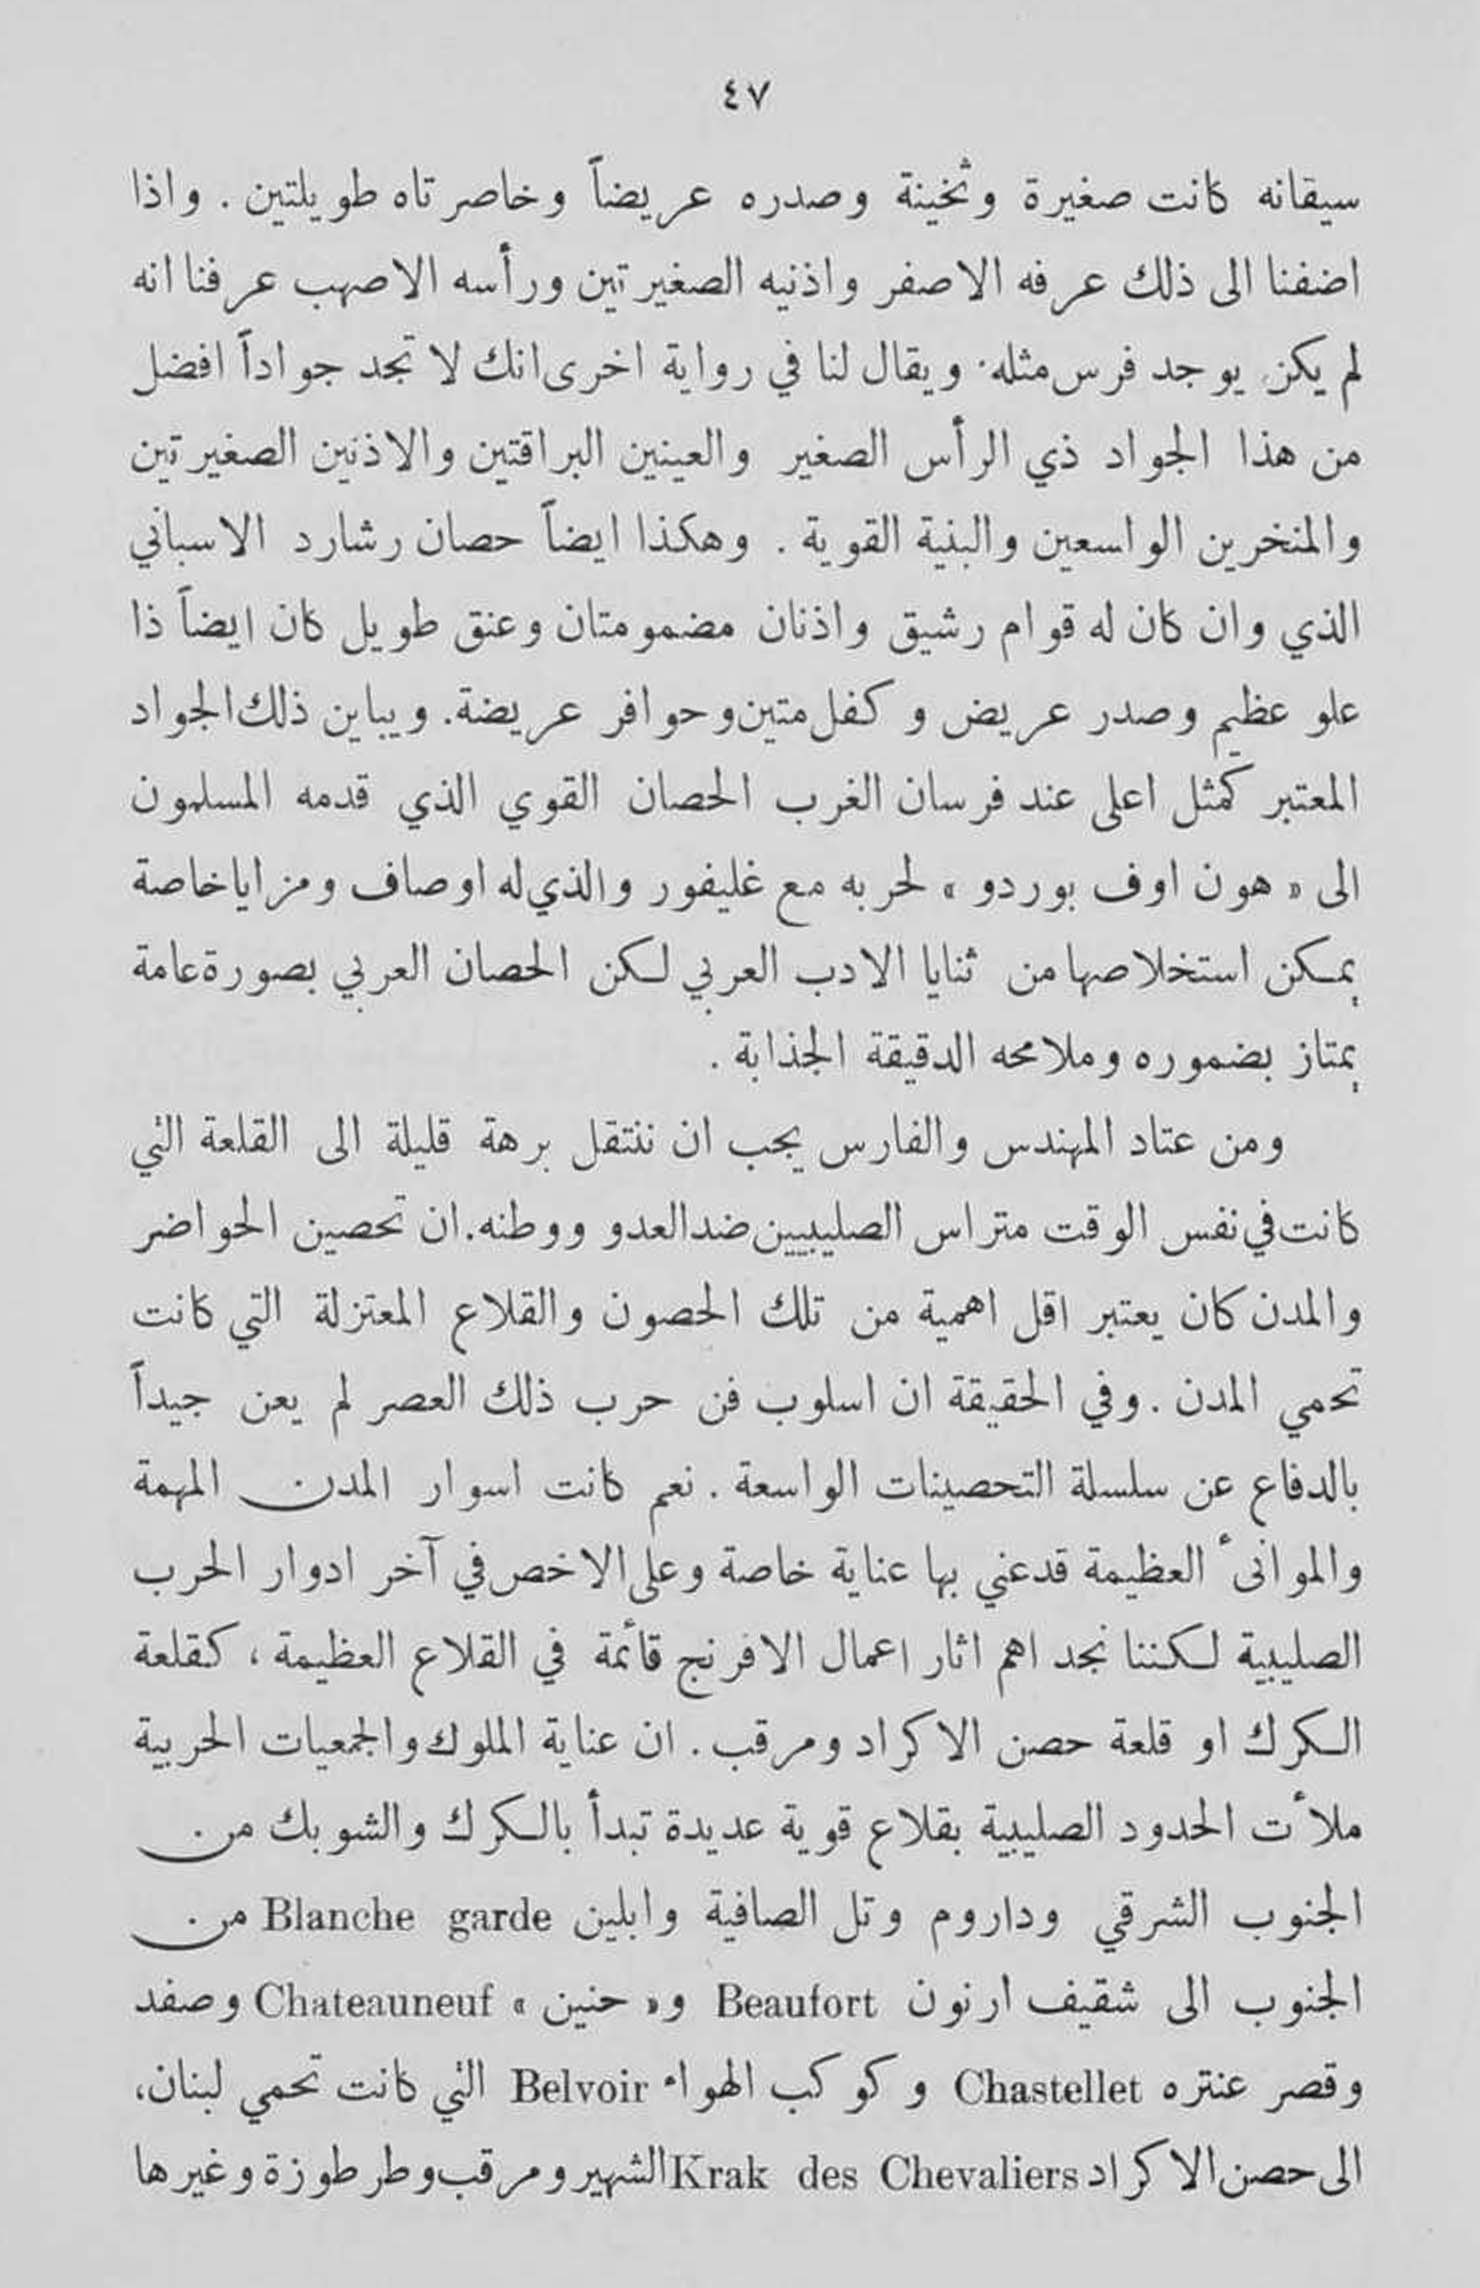 ٤٧
سيقانه كانت صغيرة وثخينة وصدره عريضاً وخاصرتاه طويلتين . واذا
اضفنا الى ذلك عرفه الاصفر واذنيه الصغيرتين ورأسه الاصهب عرفنا انه
لم يكن يوجد فرس مثله . ويقال لنا في رواية اخرى انك لا تجد جواداً افضل
من هذا الجواد ذي الرأس الصغير والعينين البراقتين والاذنين الصغيرتين
والمنخرين الواسعين والبنية القوية . وهكذا ايضاً حصان رشارد الاسباني
الذي وان كان له قوام رشيق واذنان مضمومتان وعنق طويل كان ايضاً ذا
علو عظيم وصدر عريض وكفل متين وحوافر عريضة. ويباين ذلك الجواد
المعتبر كمثل اعلى عند فرسان الغرب الحصان القوي الذي قدمه المسلمون
الى « هون اوف بوردو » لحربه مع غليفور والذي له اوصاف ومزايا خاصة
يمكن استخلاصها من ثنايا الادب العربي لكن الحصان العربي بصورة عامة
يمتاز بضموره وملامحه الدقيقة الجذابة .
ومن عتاد المهندس والفارس يجب ان ننتقل برهة قليلة الى القلعة التي
كانت في نفس الوقت متراس الصليبيين ضد العدو ووطنه. ان تحصين الحواضر
والمدن كان يعتبر اقل اهمية من تلك الحصون والقلاع المعتزلة التي كانت
تحمي المدن . وفي الحقيقة ان اسلوب فن حرب ذلك العصر لم يعن جيداً
بالدفاع عن سلسلة التحصينات الواسعة . نعم كانت اسوار المدن المهمة
والموانىء العظيمة قد عني بها عناية خاصة وعلى الاخص في آخر ادوار الحرب
الصليبية لكننا نجد اهم اثار اعمال الافرنج قائمة في القلاع العظيمة ، كقلعة
الكرك او قلعة حصن الاكراد ومرقب . ان عناية الملوك والجمعيات الحربية
ملأت الحدود الصليبية بقلاع قوية عديدة تبدأ بالكرك والشوبك من
الجنوب الشرقي وداروم وتل الصافية وابلين Blanche garde من
الجنوب الى شقيف ارنون Beaufort و« حنين » Chateauneuf وصفد
وقصر عنتره Chastellet وكوكب الهواء Belvoir التي كانت تحمي لبنان،
الى حصن الاكراد Krak des Chevaliers الشهير ومرقب وطرطوزة وغيرها